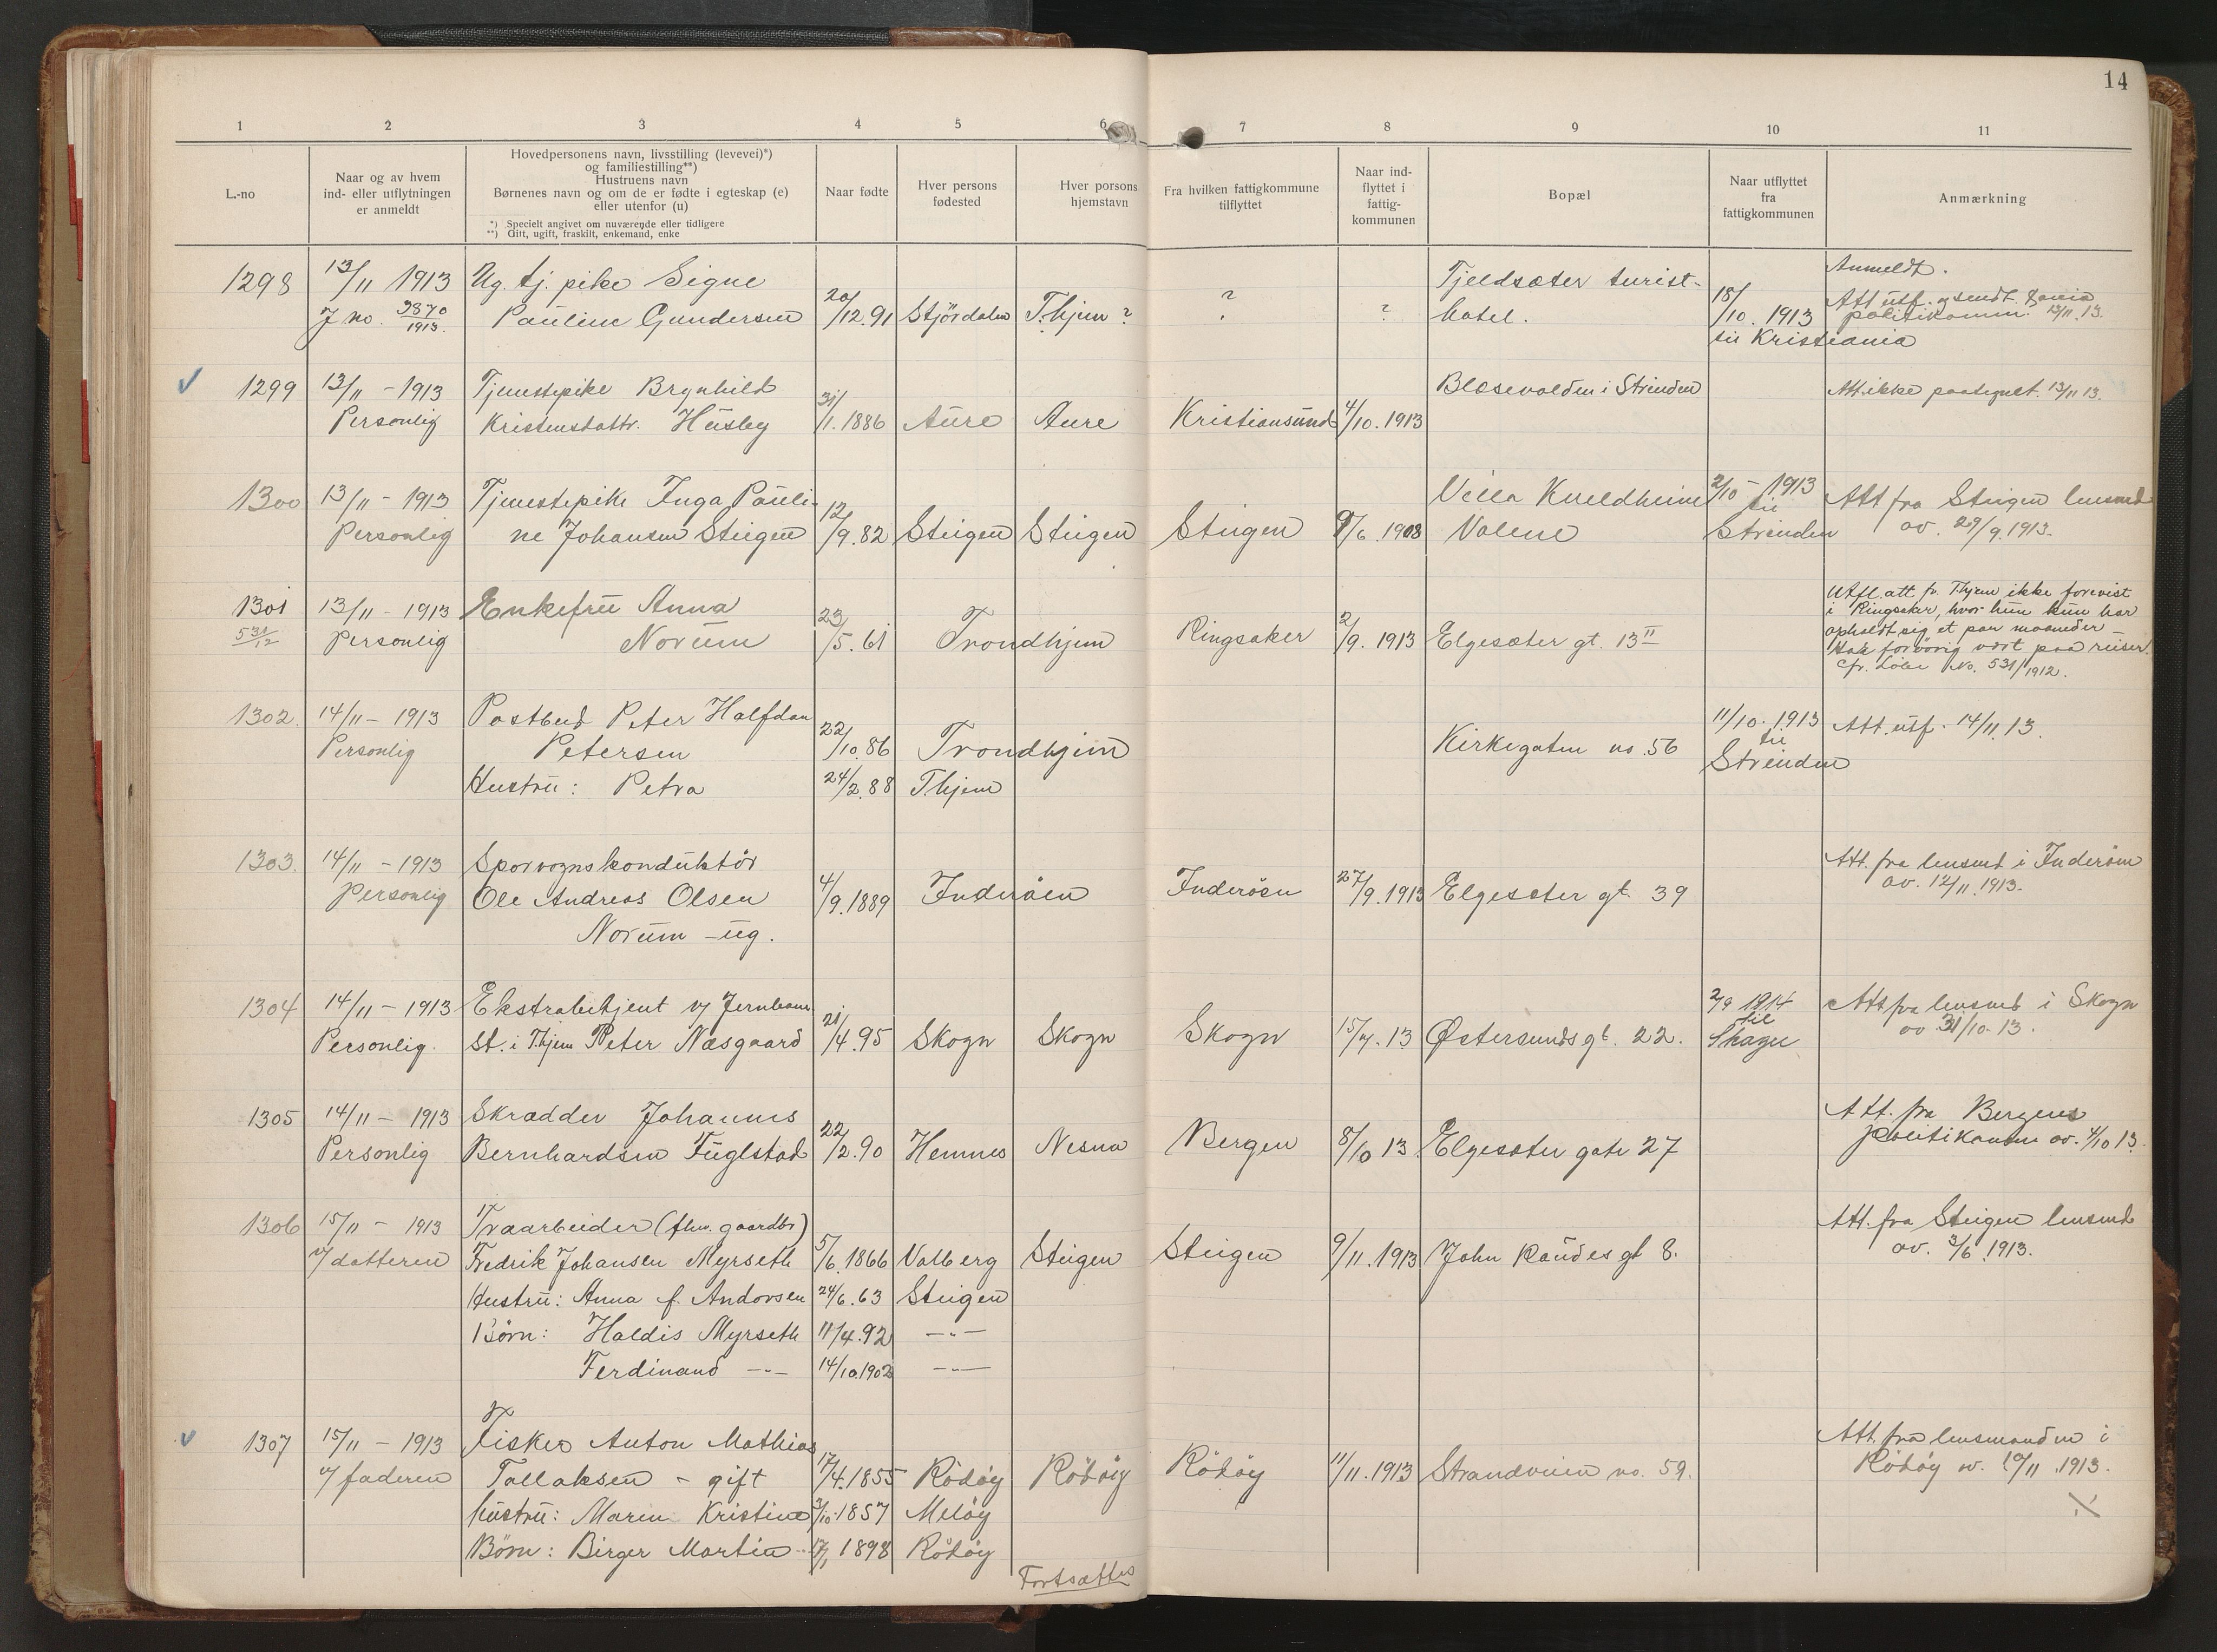 14
1 2 3 4 5 6 7 8 9 10 11
L.-no
Naar og av hvem
ind- eller utflytningen
er anmeldt
Hovedpersonens navn, livsstilling (levevei)*)
og familiestilling**)
Hustruens navn
Børnenes navn og om de er fødte i egteskap (e)
eller utenfor (u)
*) Specielt angivet om nuværende eller tidligere
**) Gitt, ugift, fraskilt, enkemand, enke
Naar fødte
Hver persons
fødested
Hver persons
hjemstavn
Fra hvilken fattigkommune
tilflyttet
Naar ind-
flyttet i
fattig-
kommunen
Bopæl
Naar utflyttet
fra
fattigkommunen
Anmærkning
1298 13/11 1913 Ug. tj. pike Signe Tjeldsæter turist- Anmeldt.
J no. 3870/1913. Pauline Gundersen 20/12.91 Stjördalen T.hjem ? ? ? hotel. 18/10. 1913 Att utf. og sendt
til Kristiania politikamm. 13/11.13.
1299 13/11 - 1913 Tjenestepike Brynhild Blæsevolden i Strinden Att ikke paategnet. 13/11 13.
Personlig Kristensdattr. Husby 31/1.1886 Aure Aure Kristiansund 4/10.1913
1300 13/11 - 1913 Tjenestepike Inga Pauli- Villa Kveldheim 2/10 - 1913 Att fra Steigen lensmd
Personlig ne Johansen Steigen 12/9.82 Steigen Steigen Steigen 9/6.1908 Volene til Strinden av. 29/9.1913.
1301 13/11 - 1913 Enkefru Anna Utfl. att fr. T.hjem ikke forevist
531/12 Personlig Norum 23/5.61 Trondhjem Ringsaker 2/9. 1913 Elgesæter gt. 13 II i Ringsaker, hvor hun kun har
opholdt sig et par maaneder -
Har forövrig vært paa reiser.
Cfr. Löbe No. 531/1912.
1302. 14/11 - 1913 Postbud Peter Halfdan 11/10. 1913 Att. utf. 14/11.13.
Personlig Petersen 22/10.86 Trondhjem Kirkegaten no. 56 til Strinden
Hustru: Petra 24/2.88 T.hjem
1303. 14/11 - 1913 Sporvognskonduktör Att. fra lensmd i Inderöen
Personlig Ole Andreas Olsen 4/9.1889 Inderöen Inderöen 27/9.1913 Elgesæter gt. 39 av. 12/11.1913.
Norum - ug.
1304 14/11 - 1913 Ekstrabetjent v/ Jernbane 2/9 1914 Att fra lensmd i Skogn
Personlig. st. i T.hjem Peter Næsgaard 21/4.95 Skogn Skogn Skogn 15/7.13 Østersunds gt. 22. til Skogn av 31/10.13.
1305 14/11 - 1913 Skrædder Johannes Att. fra Bergens
Personlig Bernhardsen Fuglstad 22/2.90 Hemnes Nesna Bergen 8/10 13. Elgesæter gate 27 politikamm av. 4/10 13.
1306 15/11 - 1913 Træarbeider (fhv. gaardbr) Att. fra Steigen lensmd
v/ datteren Fredrik Johansen Myrseth 5/6.1866 Valberg Steigen Steigen 9/11.1913 John Raudes gt 8. av. 3/6.1913.
Hustru: Anna f. Andorsen 24/6.63 Steigen
Börn: Haldis Myrseth 11/4.92 -"-
Ferdinand -"- 14/10.1902 -"-
1307 15/11 - 1913 Fisker Anton Mathias Att. fra lensmanden i
v/ faderen Tollaksen - gift 17/4.1855 Rödöy Rödöy Rödöy 11/11.1913 Strandveien no. 59. Rödöy av. 10/11.1913.
hustru: Maren Kristine 3/10.1857 Melöy
Börn: Birger Martin 1898 Rödöy
Fortsættes